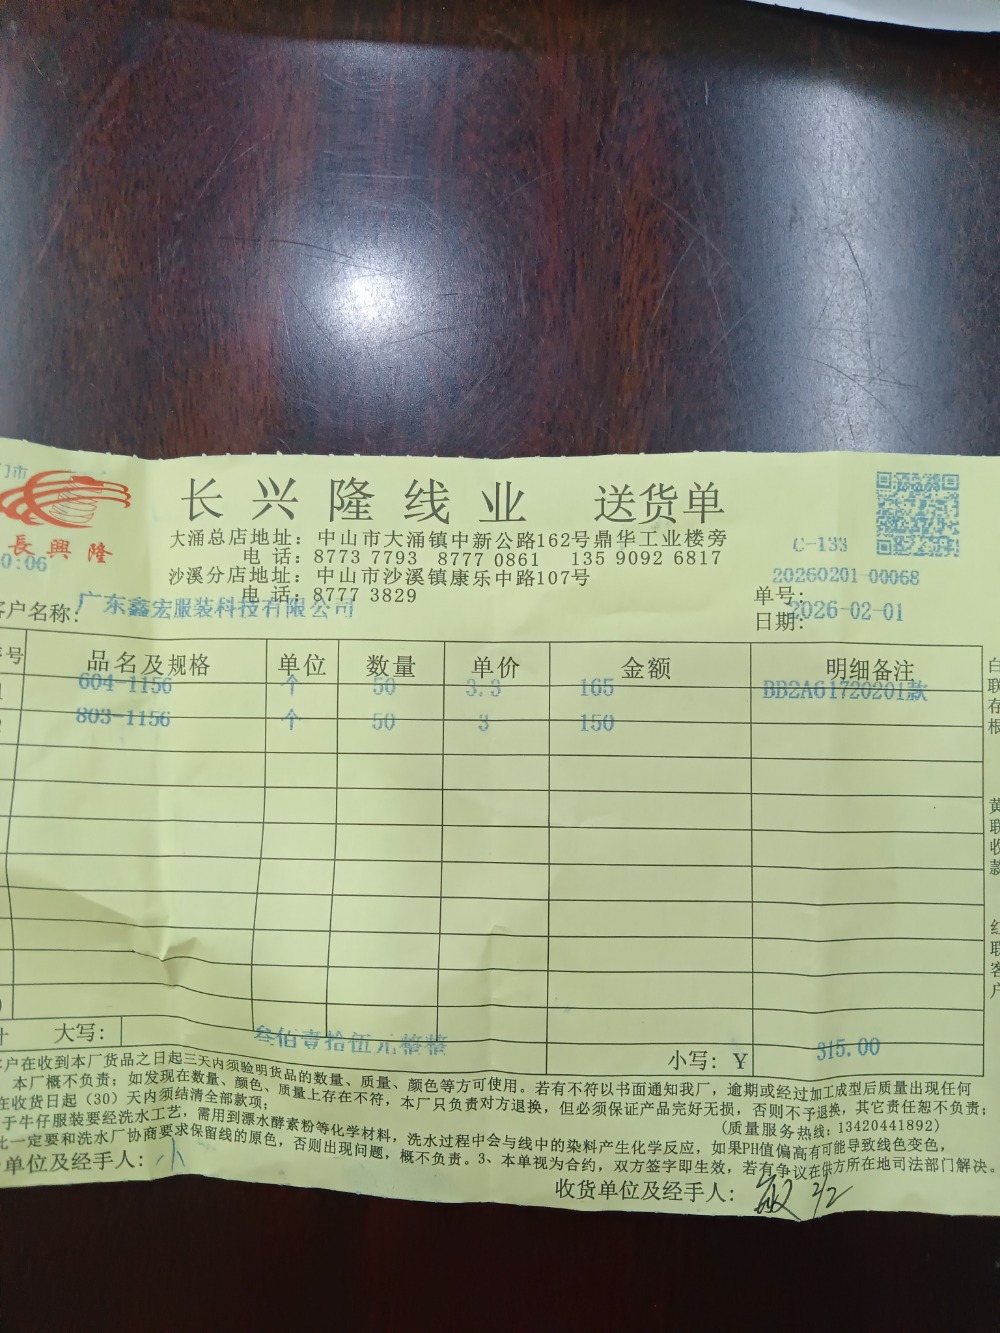 门市
長興隆
0:06
长兴隆线业 送货单
大涌总店地址：中山市大涌镇中新公路162号鼎华工业楼旁
电 话：8773 7793 8777 0861 135 9092 6817
沙溪分店地址：中山市沙溪镇康乐中路107号
电 话：8777 3829
C-133
单号：20260201-00068
日期：2026-02-01
客户名称：广东鑫宏服装科技有限公司
序号 品名及规格 单位 数量 单价 金额 明细备注
1 604-1156 个 50 3.3 165 BB2A61720201款
2 803-1156 个 50 3 150
计 大写： 叁佰壹拾伍元整整 小写：Y 315.00
客户在收到本厂货品之日起三天内须验明货品的数量、质量、颜色等方可使用。若有不符以书面通知我厂，逾期或经过加工成型后质量出现任何
本厂概不负责；如发现在数量、颜色、质量上存在不符，本厂只负责对方退换，但必须保证产品完好无损，否则不予退换，其它责任恕不负责；
在收货日起（30）天内须结清全部款项；
（质量服务热线：13420441892）
于牛仔服装要经洗水工艺，需用到漂水酵素粉等化学材料，洗水过程中会与线中的染料产生化学反应，如果PH值偏高有可能导致线色变色，
此一定要和洗水厂协商要求保留线的原色，否则出现问题，概不负责。3、本单视为合约，双方签字即生效，若有争议在供方所在地司法部门解决。
单位及经手人：小
收货单位及经手人： 2/2
白联存根
黄联收款
红联客户